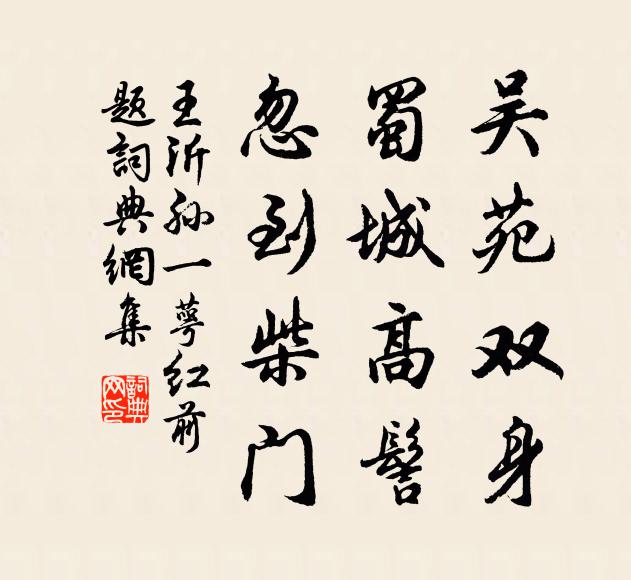 吴苑双身
蜀城高髻
忽到柴门
王沂孙一萼红前
题词典網集
词典网印